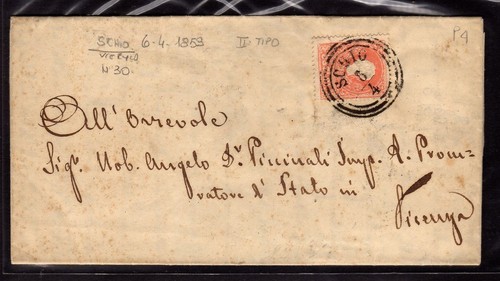 SCHIO 6-4-1859 II TIPO P4
N30
SCHIO
6
4
All'Onrevole
Sigr. Nob. Angelo Dr. Piccinali Imp. R. Procu=
ratore di Stato in
Vicenza